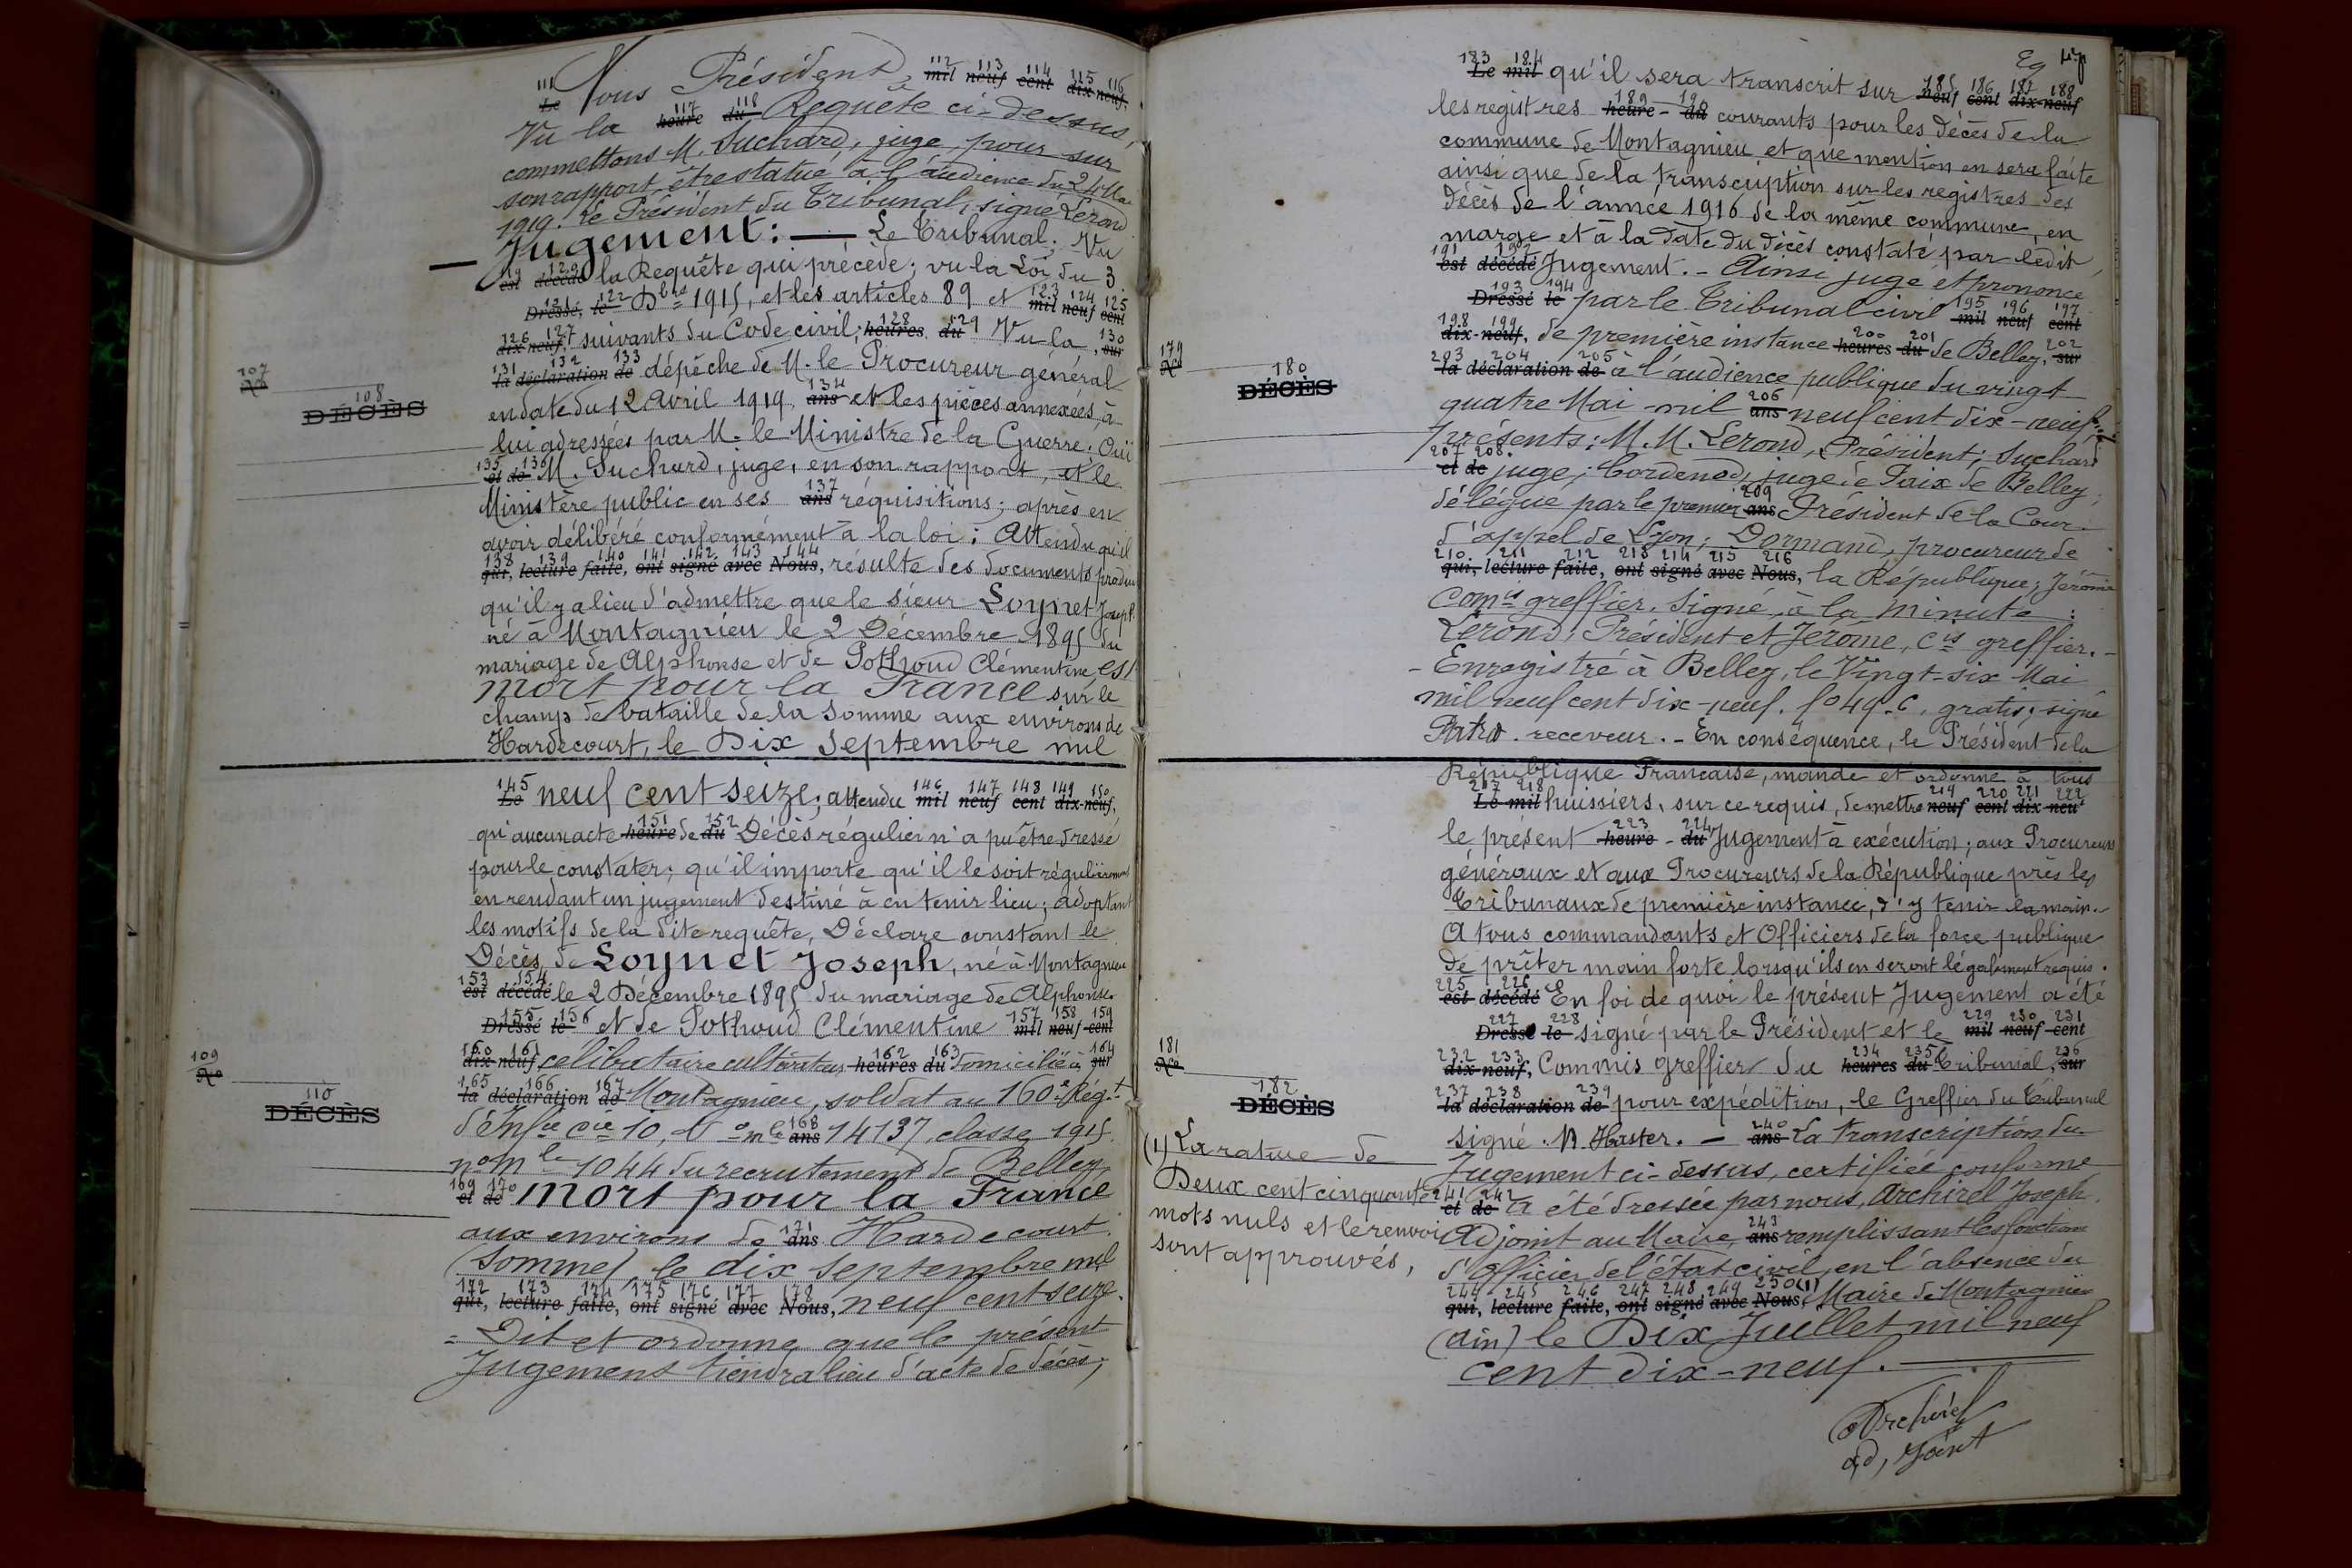 111 112 113 114 115 116
Le Nous Président, mil neuf cent dix-neuf,
117 118
Vu la heure du Requête ci-dessus,
commettons M. Suchard, juge, pour sur
son rapport, être statué à l'audience du 24 Mai
1919. Le Président du Tribunal, signé Lerond
Jugement: — Le Tribunal; Vu
119 120
est décédé la Requête qui précède; vu la Loi du 3
121 122 123 124 125
Dressé, le Dbre 1915, et les articles 89 et mil neuf cent
126 127 128 129 130
dix-neuf, suivants du Code civil; heures du Vu la, sur
131 132 133
la déclaration de dépêche de M. le Procureur général
107
No
108
DÉCÈS
134
en date du 12 Avril 1919, ans et les pièces annexées, à
lui adressées par M. le Ministre de la Guerre; Ouï
135 136
et de M. Suchard, juge, en son rapport, et le
137
Ministère public en ses ans réquisitions; après en
avoir délibéré conformément à la loi: Attendu qu'il
138 139 140 141 142 143 144
qui, lecture faite, ont signé avec Nous, résulte des documents produits
qu'il y a lieu d'admettre que le sieur Loynet Joseph
né à Montagnieu le 2 Décembre 1895 du
mariage de Alphonse et de Pothoud Clémentine, est
mort pour la France sur le
champ de bataille de la Somme aux environs de
Hardecourt, le Dix Septembre mil
145 146 147 148 149 150
Le neuf cent seize; attendu mil neuf cent dix-neuf,
151 152
qu'aucun acte heure de du Décès régulier n'a pu être dressé
pour le constater; qu'il importe qu'il le soit régulièrement
en rendant un jugement destiné à en tenir lieu; adoptant
les motifs de la dite requête, Déclare constant le
Décès de Loynet Joseph, né à Montagnieu
153 154
est décédé le 2 Décembre 1895 du mariage de Alphonse
155 156 157 158 159
Dressé le et de Pothoud Clémentine mil neuf cent
160 161 162 163 164
dix-neuf célibataire cultivateur heures du domicilié à sur
165 166 167
la déclaration de Montagnieu, soldat au 160e Régt
109
No
110
DÉCÈS
168
d'Infie Cie 10, No mle ans 14137, classe 1915
no mle 1044 du recrutement de Belley
169 170
et de mort pour la France
171
aux environs de ans Hardecourt
(Somme) le dix septembre mil
172 173 174 175 176 177 178
qui, lecture faite, ont signé avec Nous, neuf cent seize.
= Dit et ordonne que le présent
Jugement tiendra lieu d'acte de décès;
183 184 185 186 187 188
Le mil qu'il sera transcrit sur neuf cent dix-neuf
189 190
les registres heure - du courants pour les décès de la
commune de Montagnieu et que mention en sera faite
ainsi que de la transcription sur les registres des
Décès de l'année 1916 de la même commune, en
marge et à la date du décès constaté par ledit
191 192
est décédé Jugement. - Ainsi jugé et prononcé
193 194 195 196 197
Dressé le par le Tribunal civil mil neuf cent
198 199 200 201 202
dix-neuf, de première instance heures du de Belley, sur
203 204 205
la déclaration de à l'audience publique du vingt
179
No
180
DÉCÈS
206
quatre Mai mil ans neuf cent dix-neuf
présents: M.M. Lerond, Président; Suchard
207 208
et de juge; Cordenod, juge de Paix de Belley;
209
délégué par le premier ans Président de la Cour
d'appel de Lyon; Dormand, procureur de
210 211 212 213 214 215 216
qui, lecture faite, ont signé avec Nous, la République; Jérôme
Comis greffier. Signé, à la minute:
Lerond, Président et Jérome, Cis greffier.-
- Enregistré à Belley, le Vingt-six Mai
mil neuf cent dix-neuf. fo 49. C. gratis; signé
receveur. - En conséquence, le Président de la
République Française, mande et ordonne à tous
217 218 219 220 221 222
Le mil huissiers, sur ce requis, de mettre neuf cent dix-neuf
223 224
le présent heure - du Jugement à exécution; aux Procureurs
généraux et aux Procureurs de la République près les
Tribunaux de première instance, d'y tenir la main.-
A tous commandants et Officiers de la force publique
de prêter main forte lorsqu'ils en seront légalement requis.
225 226
est décédé En foi de quoi le présent Jugement a été
227 228 229 230 231
Dressé le signé par le Président et le mil neuf cent
232 233 234 235 236
dix-neuf, Commis greffier du heures du Tribunal, sur
237 238 239
la déclaration de pour expédition, le Greffier du Tribunal
181
No
182
DÉCÈS
240
signé. - ans La transcription du
Jugement ci-dessus, certifiée conforme
241 242
et de a été dressée par nous, Archirel Joseph,
243
Adjoint au Maire, ans remplissant les fonctions
d'Officier de l'état civil, en l'absence du
244 245 246 247 248 249 250 (1)
qui, lecture faite, ont signé avec Nous, Maire de Montagnieu
(Ain) le Dix Juillet mil neuf
cent dix-neuf.
(1) La rature de
Deux cent cinquante
mots nuls et le renvoi
sont approuvés,
Archirel
ad, Joint